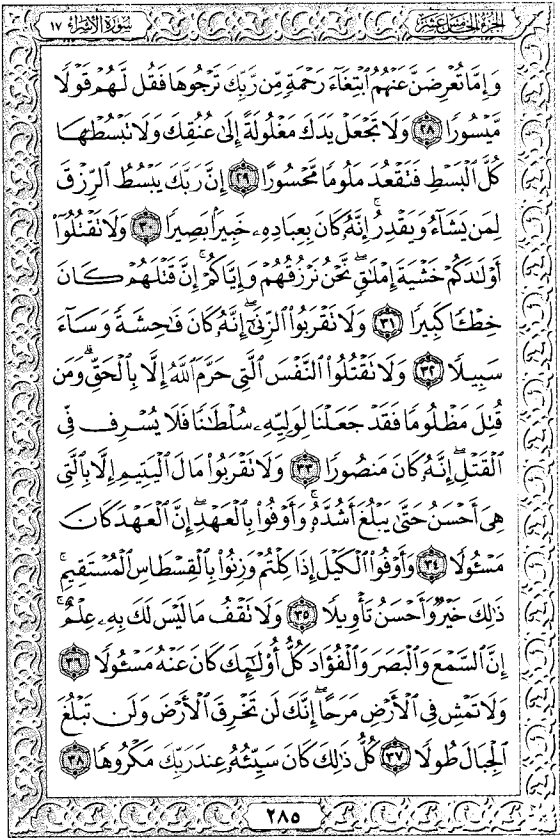 الجزء الخامس عشر
سورة الإسراء ١٧
وَإِمَّا تُعْرِضَنَّ عَنْهُمُ ٱبْتِغَآءَ رَحْمَةٍ مِّن رَّبِّكَ تَرْجُوهَا فَقُل لَّهُمْ قَوْلًا
مَّيْسُورًا ٢٨ وَلَا تَجْعَلْ يَدَكَ مَغْلُولَةً إِلَىٰ عُنُقِكَ وَلَا تَبْسُطْهَا
كُلَّ ٱلْبَسْطِ فَتَقْعُدَ مَلُومًا مَّحْسُورًا ٢٩ إِنَّ رَبَّكَ يَبْسُطُ ٱلرِّزْقَ
لِمَن يَشَآءُ وَيَقْدِرُ ۚ إِنَّهُۥ كَانَ بِعِبَادِهِۦ خَبِيرًۢا بَصِيرًا ٣٠ وَلَا تَقْتُلُوٓا۟
أَوْلَٰدَكُمْ خَشْيَةَ إِمْلَٰقٍ ۖ نَّحْنُ نَرْزُقُهُمْ وَإِيَّاكُمْ ۚ إِنَّ قَتْلَهُمْ كَانَ
خِطْـًٔا كَبِيرًا ٣١ وَلَا تَقْرَبُوا۟ ٱلزِّنَىٰٓ ۖ إِنَّهُۥ كَانَ فَٰحِشَةً وَسَآءَ
سَبِيلًا ٣٢ وَلَا تَقْتُلُوا۟ ٱلنَّفْسَ ٱلَّتِى حَرَّمَ ٱللَّهُ إِلَّا بِٱلْحَقِّ ۗ وَمَن
قُتِلَ مَظْلُومًا فَقَدْ جَعَلْنَا لِوَلِيِّهِۦ سُلْطَٰنًا فَلَا يُسْرِف فِّى
ٱلْقَتْلِ ۖ إِنَّهُۥ كَانَ مَنصُورًا ٣٣ وَلَا تَقْرَبُوا۟ مَالَ ٱلْيَتِيمِ إِلَّا بِٱلَّتِى
هِىَ أَحْسَنُ حَتَّىٰ يَبْلُغَ أَشُدَّهُۥ ۚ وَأَوْفُوا۟ بِٱلْعَهْدِ ۖ إِنَّ ٱلْعَهْدَ كَانَ
مَسْـُٔولًا ٣٤ وَأَوْفُوا۟ ٱلْكَيْلَ إِذَا كِلْتُمْ وَزِنُوا۟ بِٱلْقِسْطَاسِ ٱلْمُسْتَقِيمِ ۚ
ذَٰلِكَ خَيْرٌ وَأَحْسَنُ تَأْوِيلًا ٣٥ وَلَا تَقْفُ مَا لَيْسَ لَكَ بِهِۦ عِلْمٌ ۚ
إِنَّ ٱلسَّمْعَ وَٱلْبَصَرَ وَٱلْفُؤَادَ كُلُّ أُو۟لَٰٓئِكَ كَانَ عَنْهُ مَسْـُٔولًا ٣٦
وَلَا تَمْشِ فِى ٱلْأَرْضِ مَرَحًا ۖ إِنَّكَ لَن تَخْرِقَ ٱلْأَرْضَ وَلَن تَبْلُغَ
ٱلْجِبَالَ طُولًا ٣٧ كُلُّ ذَٰلِكَ كَانَ سَيِّئُهُۥ عِندَ رَبِّكَ مَكْرُوهًا ٣٨
٢٨٥